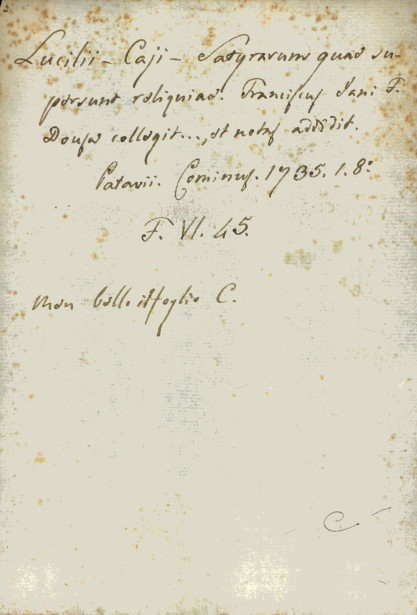 Lucilii - Caji - Satyrarum quae su-
persunt reliquiae. Franciscus Jani F.
Dousa collegit..., et notas addidit.
Patavii. Cominus. 1735. 1. 8:
F. VI. 45.
Man bello C.
C